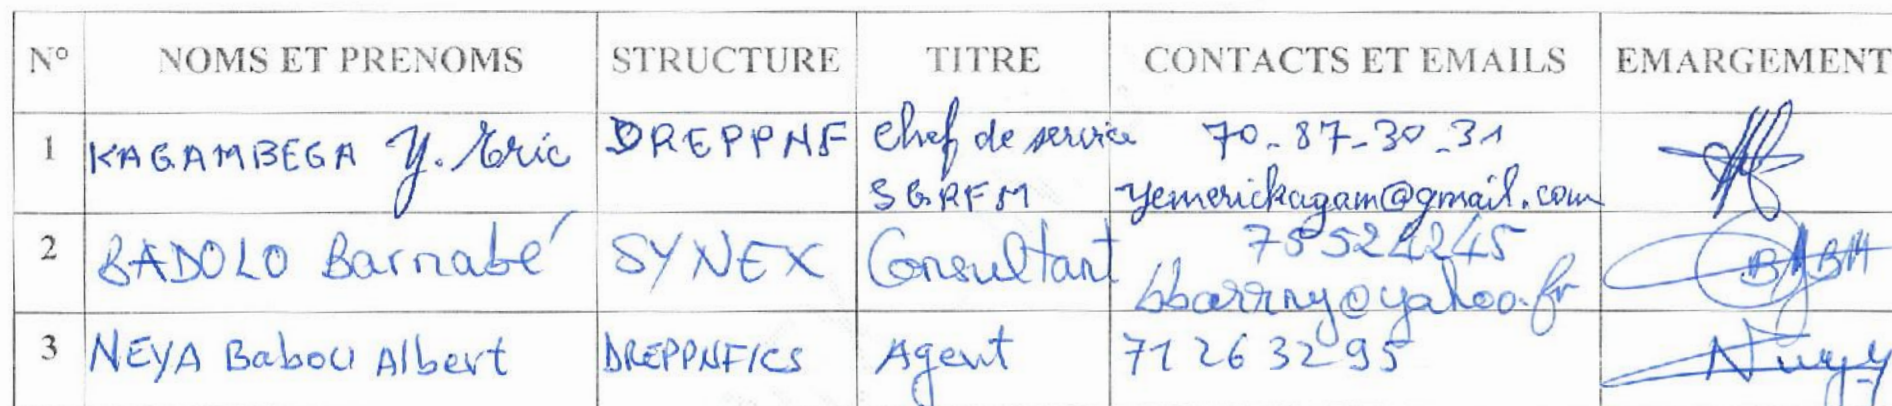 N° NOMS ET PRENOMS STRUCTURE TITRE CONTACTS ET EMAILS EMARGEMENT
1 KAGAMBEGA Y. Eric DREPPNF Chef de service 70-87-30-31
SGRFM yemerickagam@gmail.com
2 BADOLO Barnabé SYNEX Consultant 75524245
bbarrny@yahoo.fr
3 NEYA Babou Albert DREPPNF/CS Agent 71 26 32 95